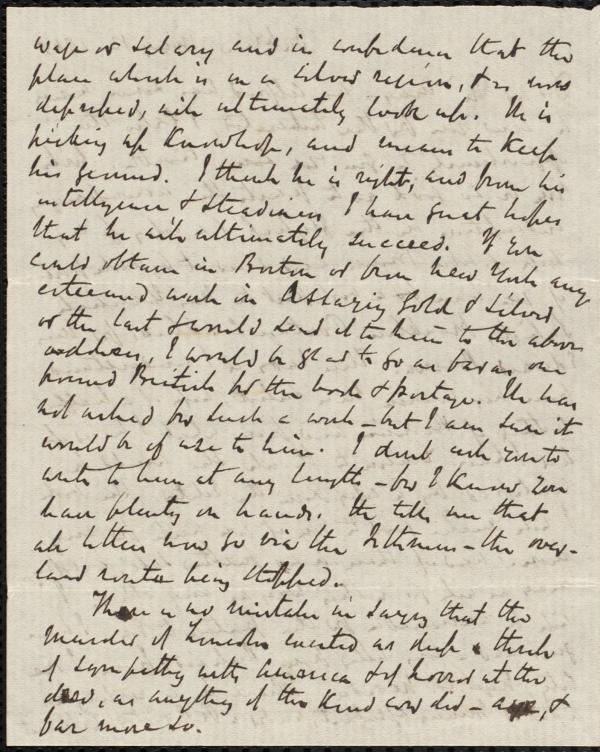 wage or salary and in confidence that the
place which is in a silver region, & is now
depressed, will ultimately look up. He is
picking up knowledge, and means to keep
his ground. I think he is right, and from his
intelligence & steadiness I have great hopes
that he will ultimately succeed. If you
could obtain in Boston or from New York any
esteemed work in Assaying Gold & Silver
or the last & would send it to him to the above
address, I would be glad to go as far as one
pound British for the book & postage. He has
not asked for such a work – but I am sure it
would be of use to him. I dont ask you to
write to him at any length – for I know you
have plenty on hands. He tells me that
all letters now go via the Isthmus – the over-
land route being stopped.
There is no mistake in saying that the
murder of Lincoln excited as deep a thrill
of sympathy with America & of horror at the
deed, as anything of the kind could did – aye, &
far more so.